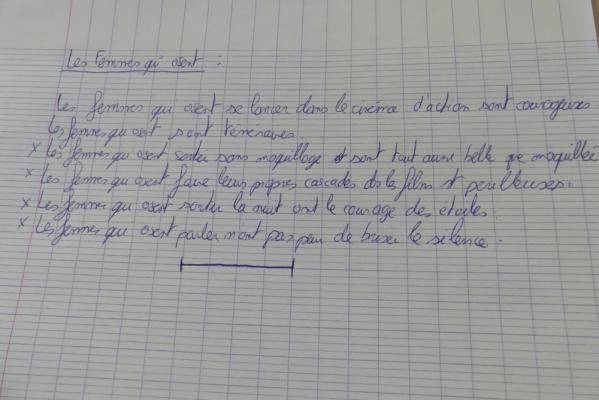 Les Femmes qui osent :
Les femmes qui osent se lancer dans le cinéma d'action sont courageuses
Les femmes qui osent sont téméraires.
x Les femmes qui osent sortir sans maquillage sont tout aussi belle que maquillée
x Les femmes qui osent faire leurs propres cascades ds les films st périlleuses.
x Les femmes qui osent sortir la nuit ont le courage des étoiles.
x Les femmes qui osent parler n'ont pas peur de briser le silence.